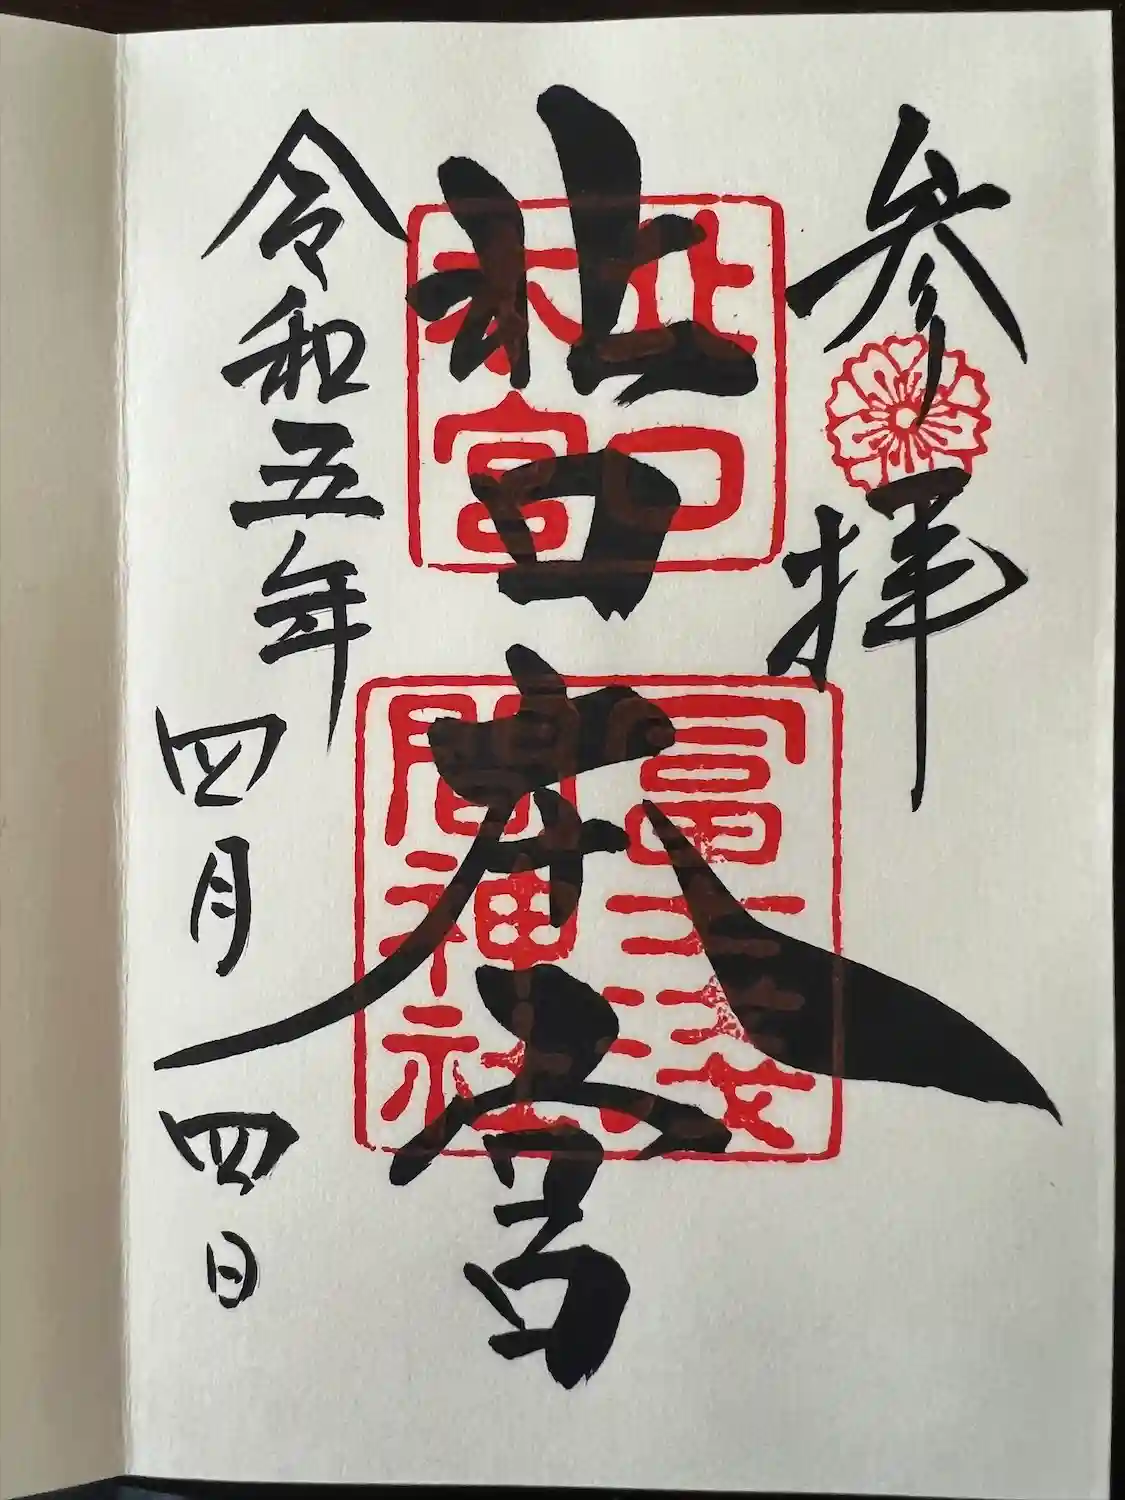 参拝
北口本宮
北口
本宮
冨士淺
間神社
令和五年
四月四日